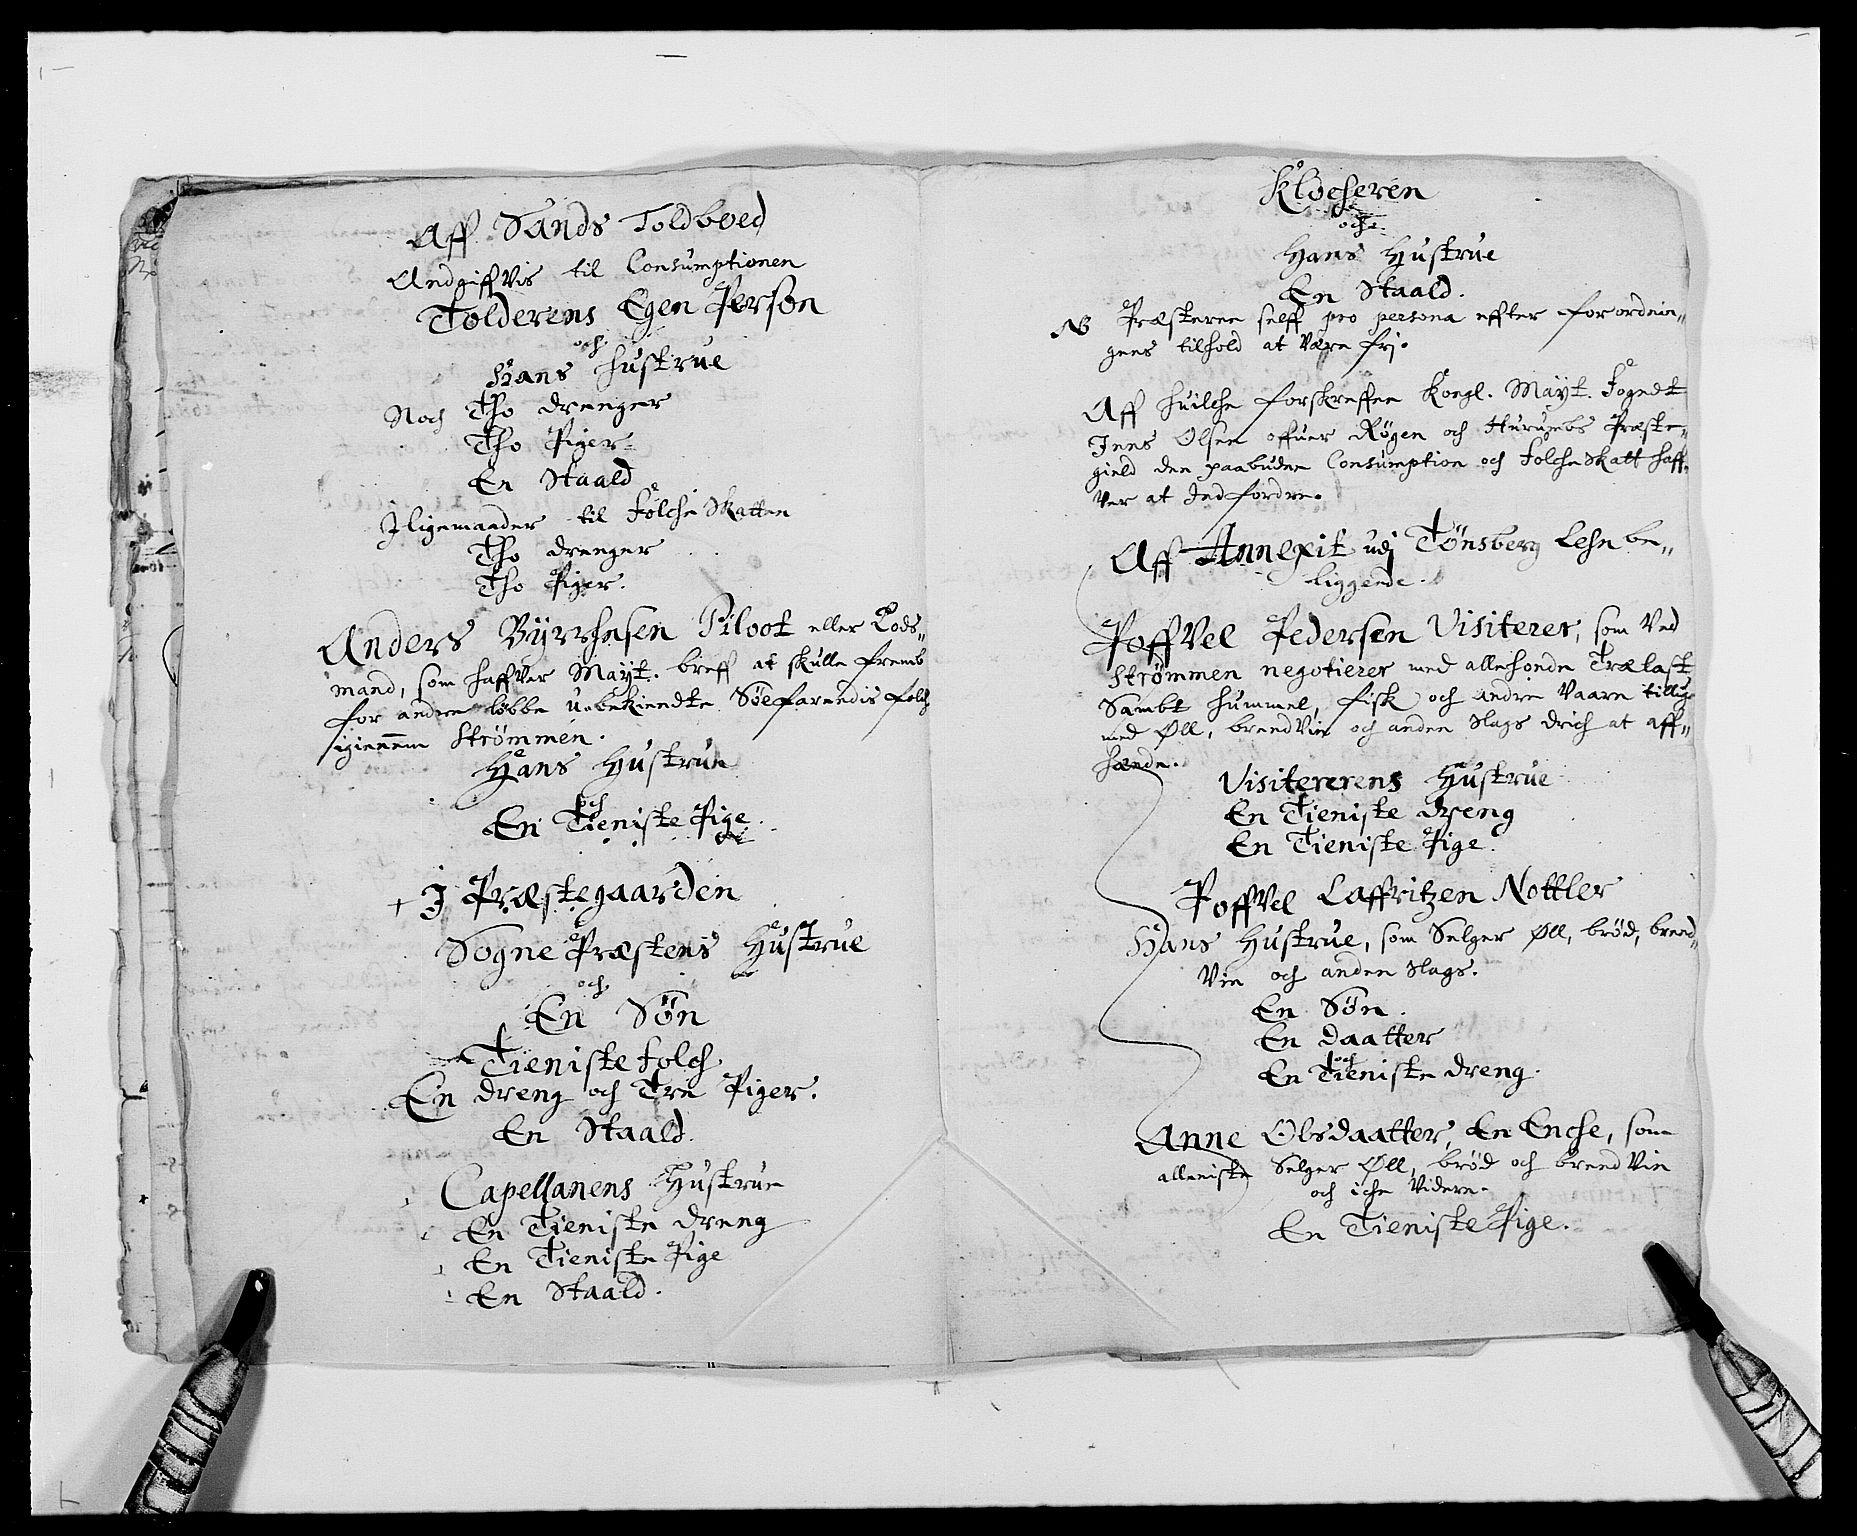 Aff Sands Toldboed
Andgiffvis til Consumptionen
Tolderens Egen Person
och
Hans Hustrue
Noch Tho drenger
Tho Piger
En Staald
Jligemaader til FolcheSkatten
Tho drenger
Tho Piger.
Anders Byrrhesen Piloot eller Lods„
mand, som haffver Mayt. breff at skulle fremb
for andre løbbe uebekiendte Søefarendis folch
igiennem Strømmen.
Hans Hustrue
och
En Tieniste Pige.
+ J Præstegaarden
Sogne Præstens Hustrue
och
En Søn
Tieniste folch
En dreng och Tre Piger.
En Staald.
Capellanens Hustrue
En Tieniste dreng
En Tieniste Pige
En Staald.
Klocheren
och
Hans Hustrue
En Staald.
NB Præsterne self pro persona effter forordnin„
gens tilhold at være frj.
Aff huilche forskreffne Kongl. Mayt. Fogedt
Jens Olsen offuer Røgen och Hurumbs Præste„
gield den paabudne Consumption och FolcheSkatt haff„
ver at Jndfordre.
Aff Annexit udj Tønsberg Lehn be„
liggende.
Poffvel Pedersen Visiterer, som ved
Strømmen negotierer med allehonde Trælast
Sambt hummel, fisk och andre Vaare tillige
med Øll, brendVin och anden Slags drich at aff„
hænde.
Visitererens Hustrue
En Tieniste dreng
En Tieniste Pige.
Poffvel Laffritzen Nottler
Hans Hustrue, som Selger Øll, brød, brend„
Vin och anden Slags.
En Søn.
En daatter
och
En Tieniste dreng.
Anne Olsdaatter, En Enche, som
alleniste Selger Øll, brød och brendVin
och iche videre.
En Tieniste Pige.